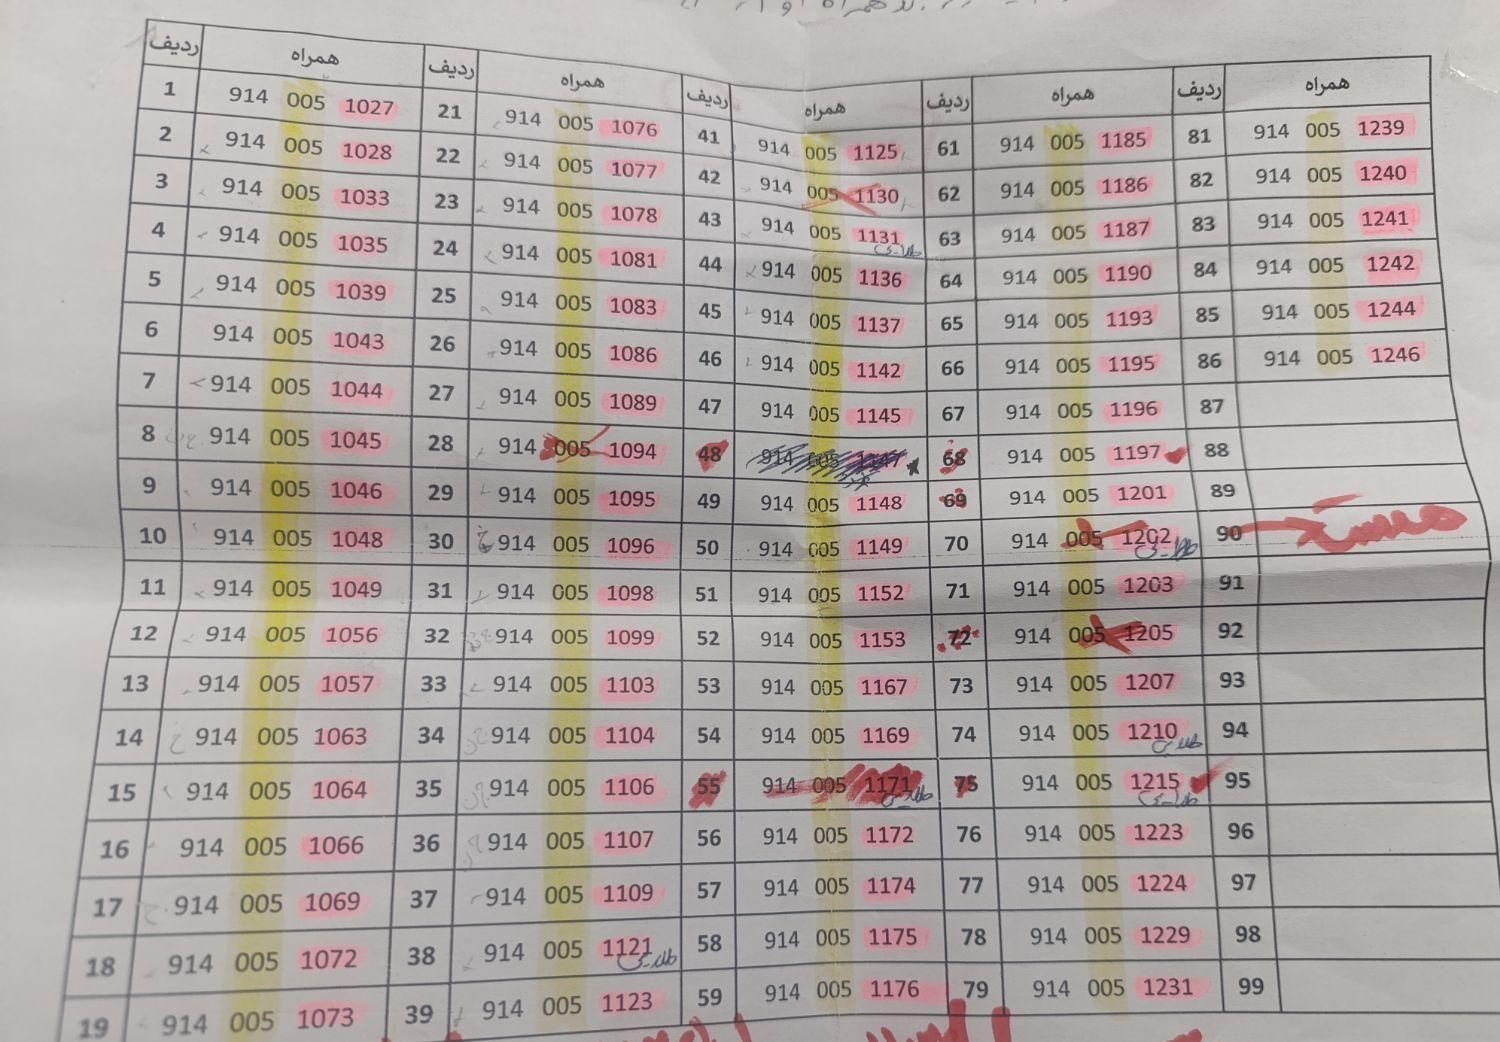 ردیف همراه ردیف همراه ردیف همراه ردیف همراه ردیف همراه
1 914 005 1027 21 914 005 1076 41 914 005 1125 61 914 005 1185 81 914 005 1239
2 914 005 1028 22 914 005 1077 42 914 005 1130 62 914 005 1186 82 914 005 1240
3 914 005 1033 23 914 005 1078 43 914 005 1131 طلایی 63 914 005 1187 83 914 005 1241
4 914 005 1035 24 914 005 1081 44 914 005 1136 64 914 005 1190 84 914 005 1242
5 914 005 1039 25 914 005 1083 45 914 005 1137 65 914 005 1193 85 914 005 1244
6 914 005 1043 26 914 005 1086 46 914 005 1142 66 914 005 1195 86 914 005 1246
7 914 005 1044 27 914 005 1089 47 914 005 1145 67 914 005 1196 87
8 914 005 1045 28 914 005 1094 48 914 005 68 914 005 1197 88
9 914 005 1046 29 914 005 1095 49 914 005 1148 69 914 005 1201 89
10 914 005 1048 30 914 005 1096 50 914 005 1149 70 914 005 1202 طلایی 90
11 914 005 1049 31 914 005 1098 51 914 005 1152 71 914 005 1203 91
12 914 005 1056 32 914 005 1099 52 914 005 1153 72 914 005 1205 92
13 914 005 1057 33 914 005 1103 53 914 005 1167 73 914 005 1207 93
14 914 005 1063 34 914 005 1104 54 914 005 1169 74 914 005 1210 طلایی 94
15 914 005 1064 35 914 005 1106 55 914 005 1171 طلایی 75 914 005 1215 طلایی 95
16 914 005 1066 36 914 005 1107 56 914 005 1172 76 914 005 1223 96
17 914 005 1069 37 914 005 1109 57 914 005 1174 77 914 005 1224 97
18 914 005 1072 38 914 005 1121 طلایی 58 914 005 1175 78 914 005 1229 98
19 914 005 1073 39 914 005 1123 59 914 005 1176 79 914 005 1231 99